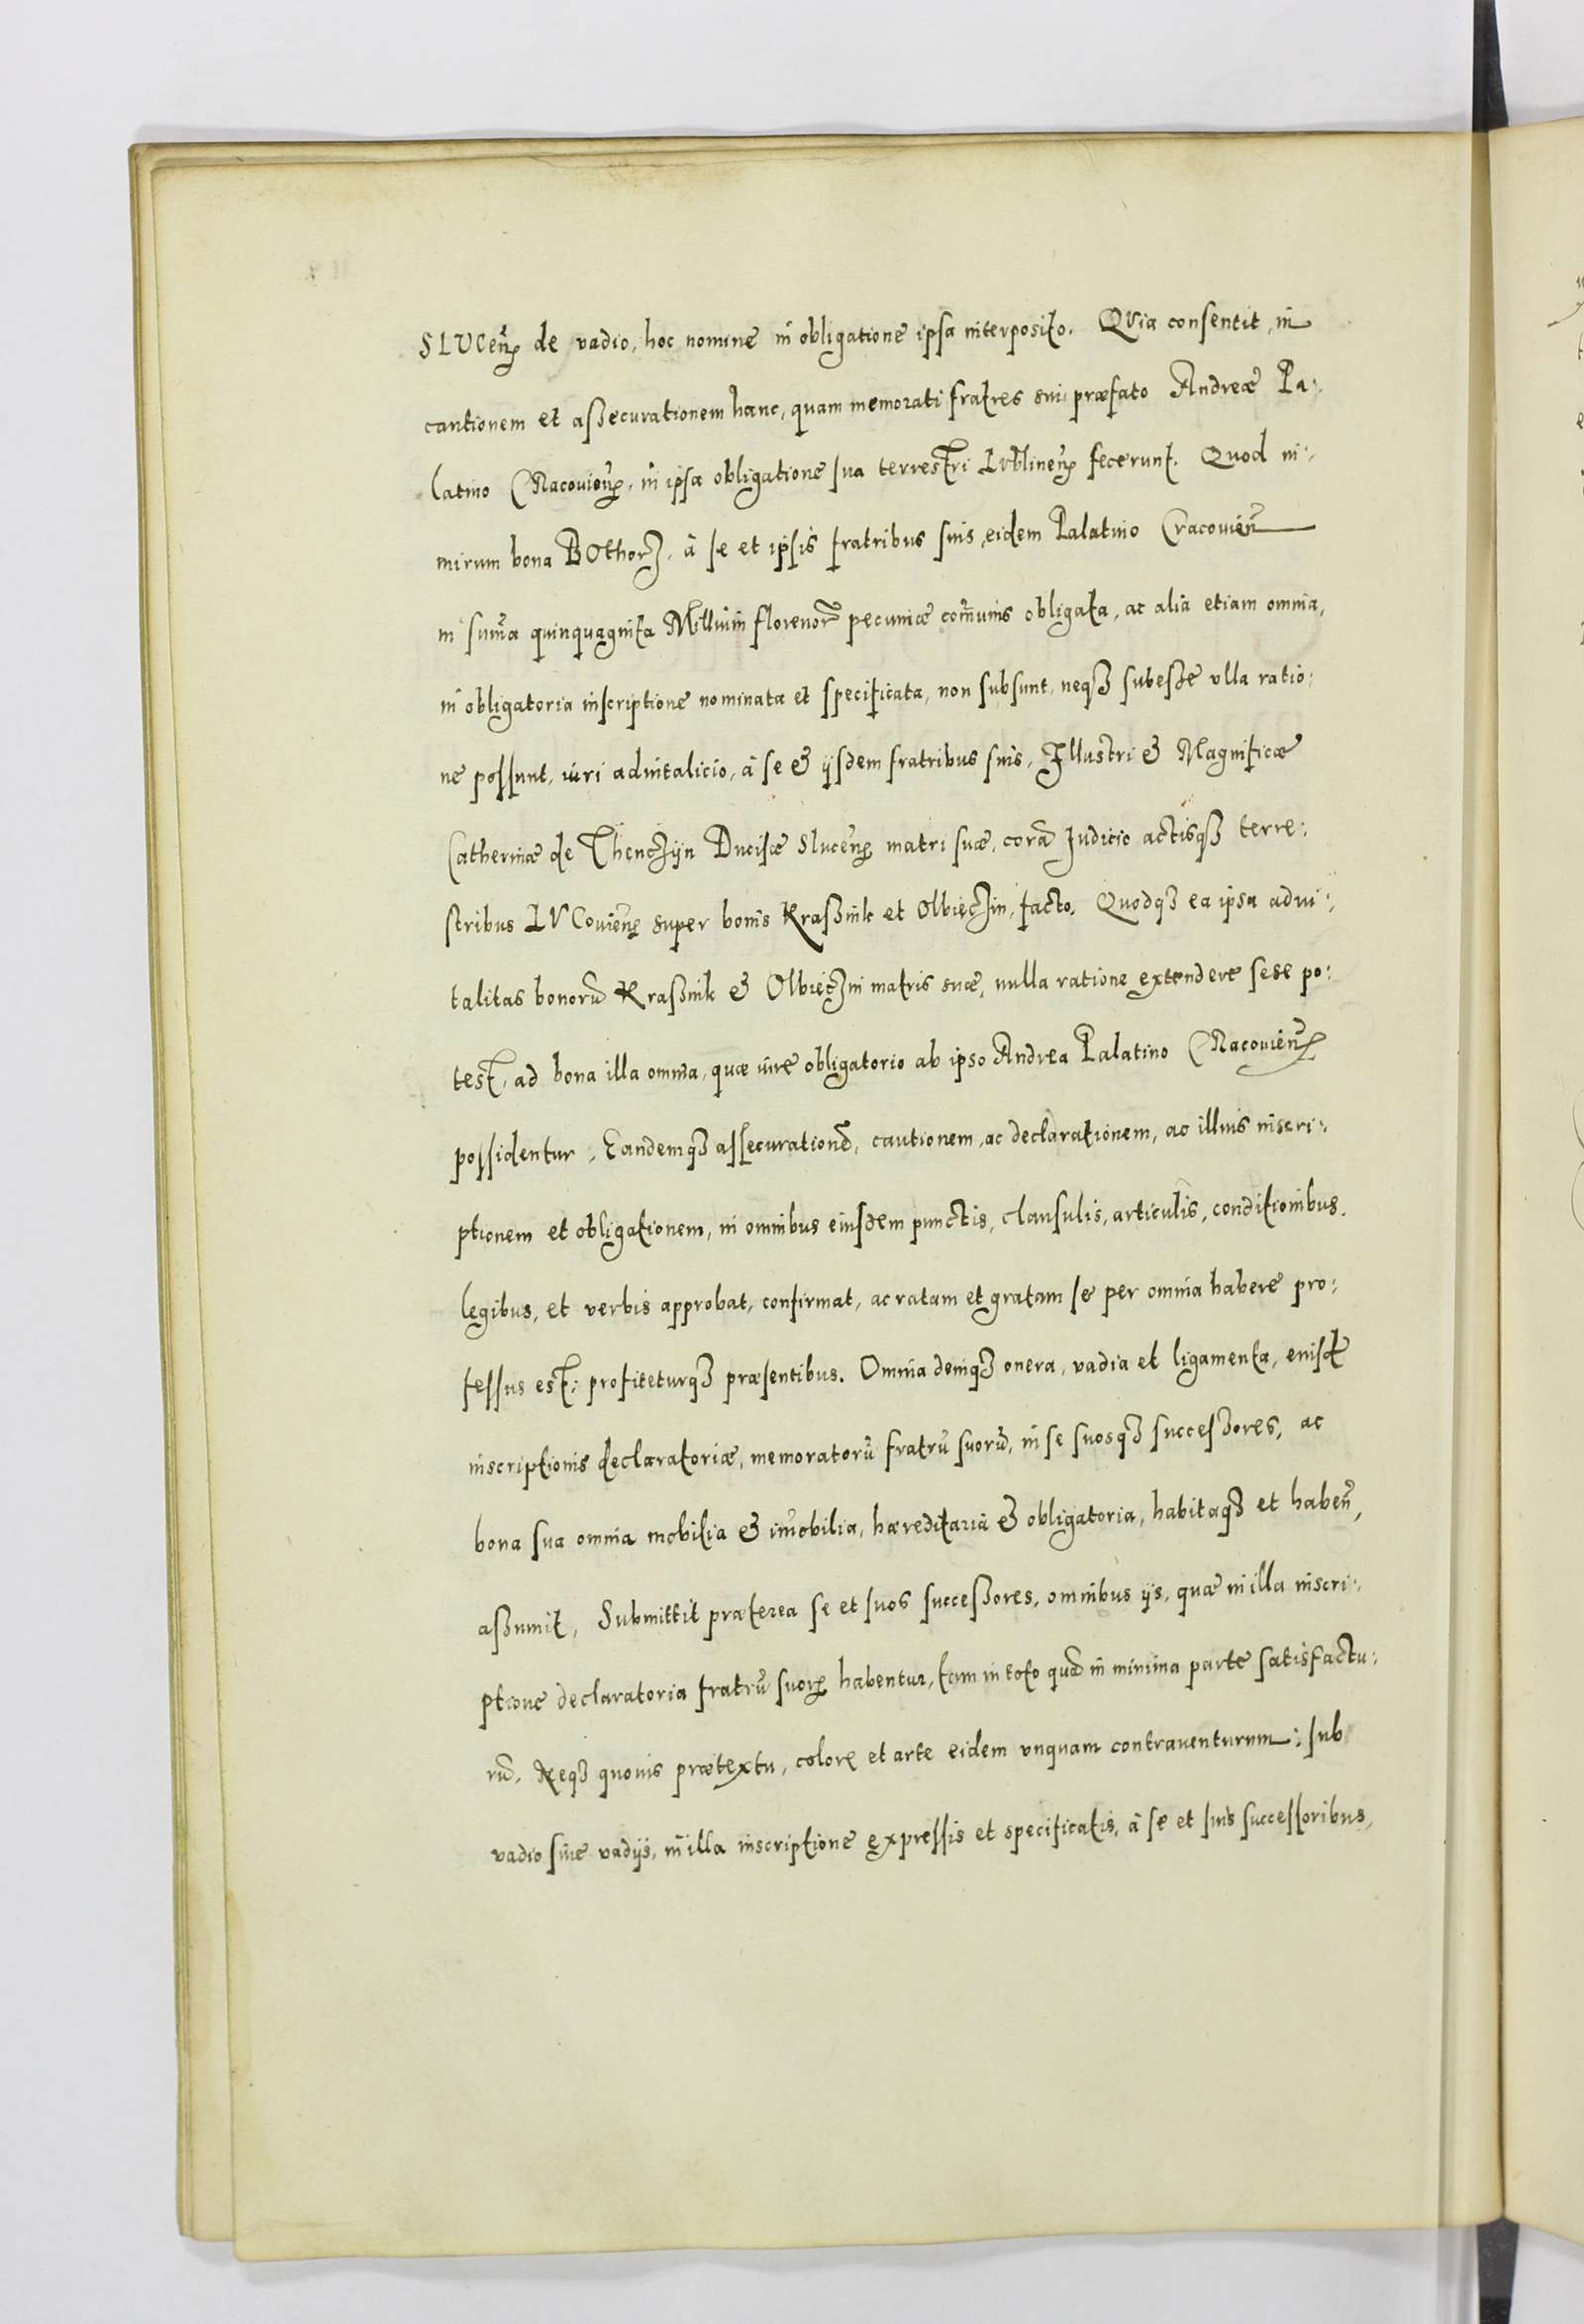 SLUCeñ de vadio, hoc nomine in obligatione ipsa interposito. QVia consentit, in
cautionem et aßecurationem hanc, quam memorati fratres sui præfato Andreæ Pa:
latino CRacovieñ, in ipsa obligatione sua terrestri LVblineñ fecerunt. Quod ni:
mirum bona BOthorz, à se et ipsis fratribus suis, eidem Palatino Cracovieñ
in suma quinquaginta Millium florenor pecuniæ comunis obligata, ac alia etiam omnia,
in obligatoria inscriptione nominata et specificata, non subsunt, neqz subesse ulla ratio:
ne possunt, iuri advitalicio, à se & ijsdem fratribus suis, Illustri & Magnificæ
Catherinæ de Thenczijn Ducisæ Sluceñ matri suæ, corã Judicio actisqz terre:
stribus LVCovieñ super bonis Kraßnik et Olbięczin, facto. Quodqz ea ipsa advi:
talitas bonorũ Kraßnik & Olbięczin matris suæ, nulla ratione extendere sese po:
test, ad bona illa omnia, quæ iure obligatorio ab ipso Andrea Palatino CRacovieñ
possidentur, Eandemqz assecurationẽ, cautionem, ac declarationem, ac illius inscri:
ptionem et obligationem, in omnibus eiusdem punctis, clausulis, articulis, conditionibus,
legibus, et verbis approbat, confirmat, ac ratam et gratam se per omnia habere pro:
fessus est: profiteturqz præsentibus. Omnia deniqz onera, vadia et ligamenta, eiusdẽ
inscriptionis declaratoriæ, memoratorũ fratrũ suorũ, in se suosqz succeßores, ac
bona sua omnia mobilia & imobilia, hæreditaria & obligatoria, habitaqz et habeñ,
aßumit, Submittit præterea se et suos succeßores, omnibus ijs, quæ in illa inscri:
ptione declaratoria fratrũ suor habentur, tam in toto quã in minima parte satisfactu:
rũ. Neqz quovis prætextu, colore et arte eidem unquam contraventurum: sub
vadio sive vadijs, in illa inscriptione expressis et specificatis, à se et suis successoribus,